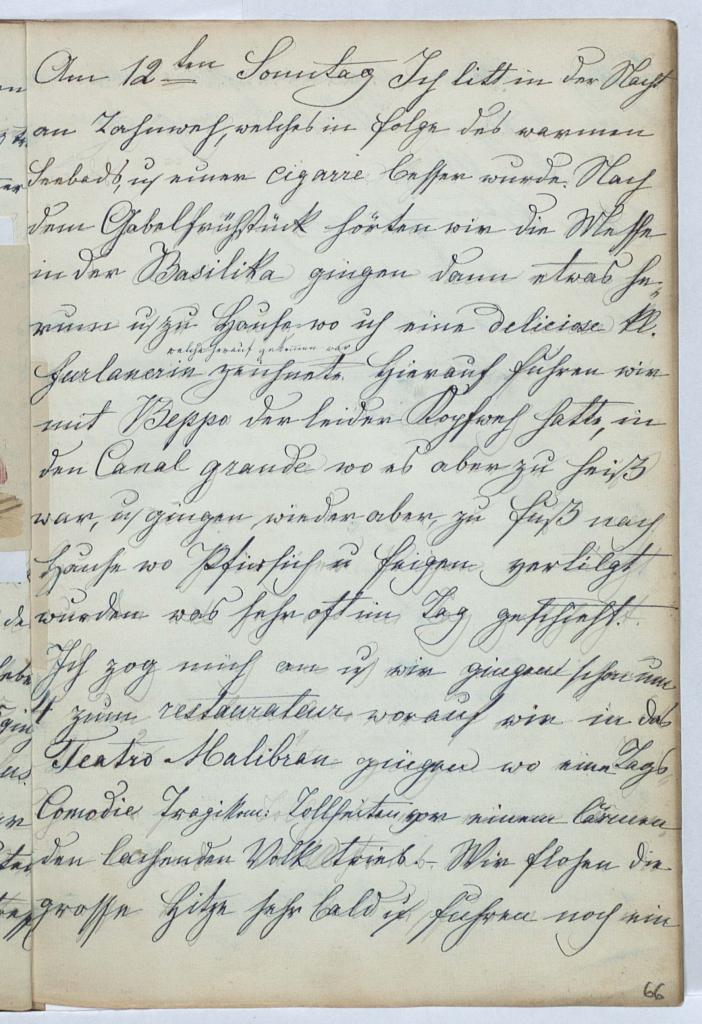 Am 12ten Sonntag Ich litt in der Nacht
an Zahnweh, welches in folge des warmen
Seebads, u einer cigarre besser wurde. Nach
dem Gabelfrühstück hörten wir die Messe
in der Basilika gingen dann etwas he-
rum u zu Hause wo ich eine deliciose kl.
welche herauf gekommen war
Furlanerin zeichnete. Hierauf fuhren wir
mit Beppo der leider Kopfweh hatte, in
den Canal grande wo es aber zu heiß
war, u gingen wieder aber zu fuß nach
Hause wo Pfirsich u feigen vertilgt
wurden was sehr oft im Tag geschieht.
Ich zog mich an u wir gingen schon um
4 zum restaurateur worauf wir in das
Teatro Malibran gingen wo eine Tags
Comödie Tragikom: Tollheiten vor einem lärmen
den lachenden Volk trieb. – Wir flohen die
grosse Hitze sehr bald u fuhren noch ein
66